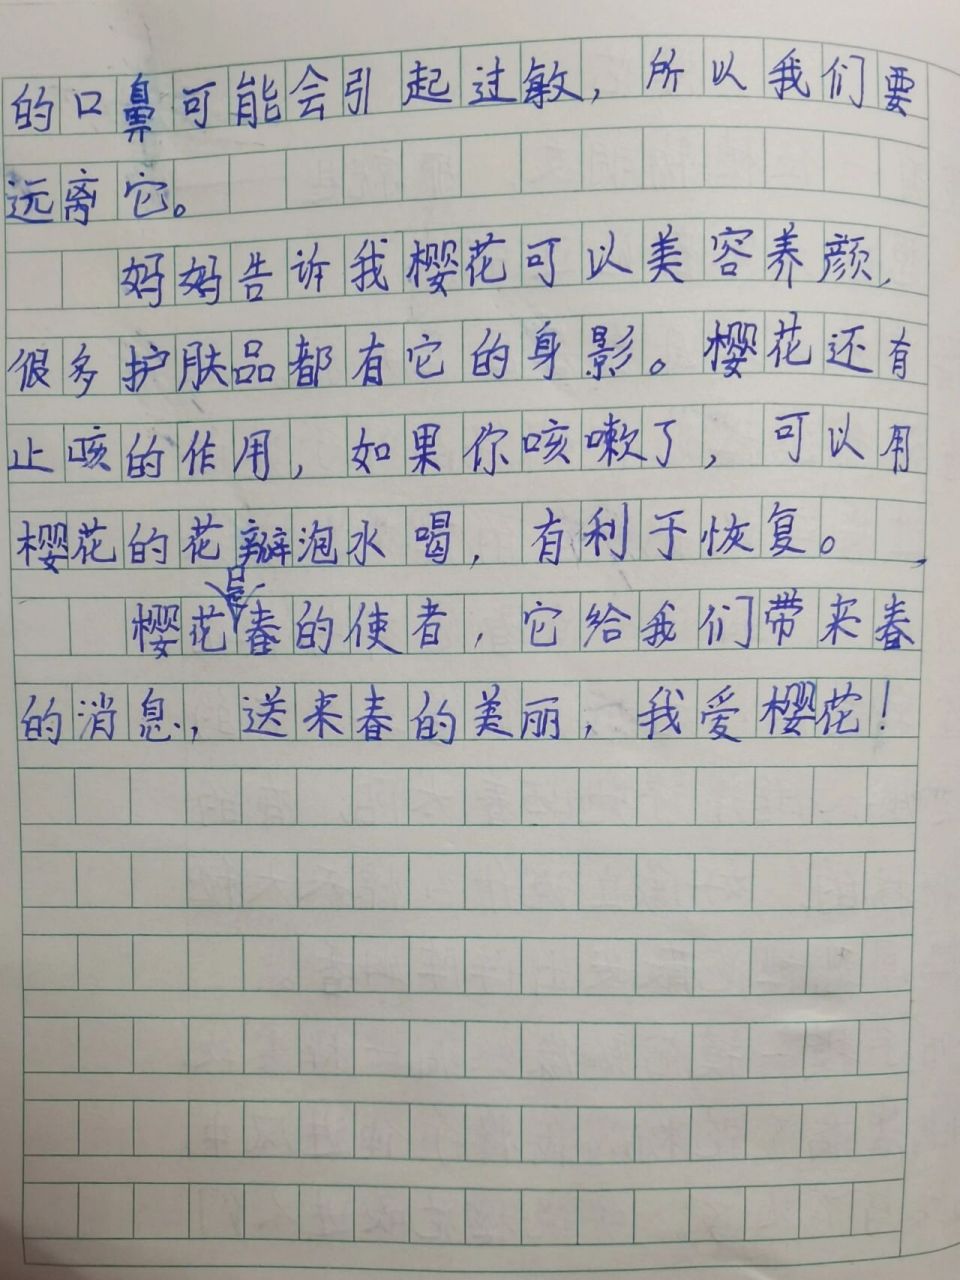 的口鼻可能会引起过敏，所以我们要
远离它。
妈妈告诉我樱花可以美容养颜，
很多护肤品都有它的身影。樱花还有
止咳的作用，如果你咳嗽了，可以用
樱花的花瓣泡水喝，有利于恢复。
樱花是春的使者，它给我们带来春
的消息，送来春的美丽，我爱樱花！